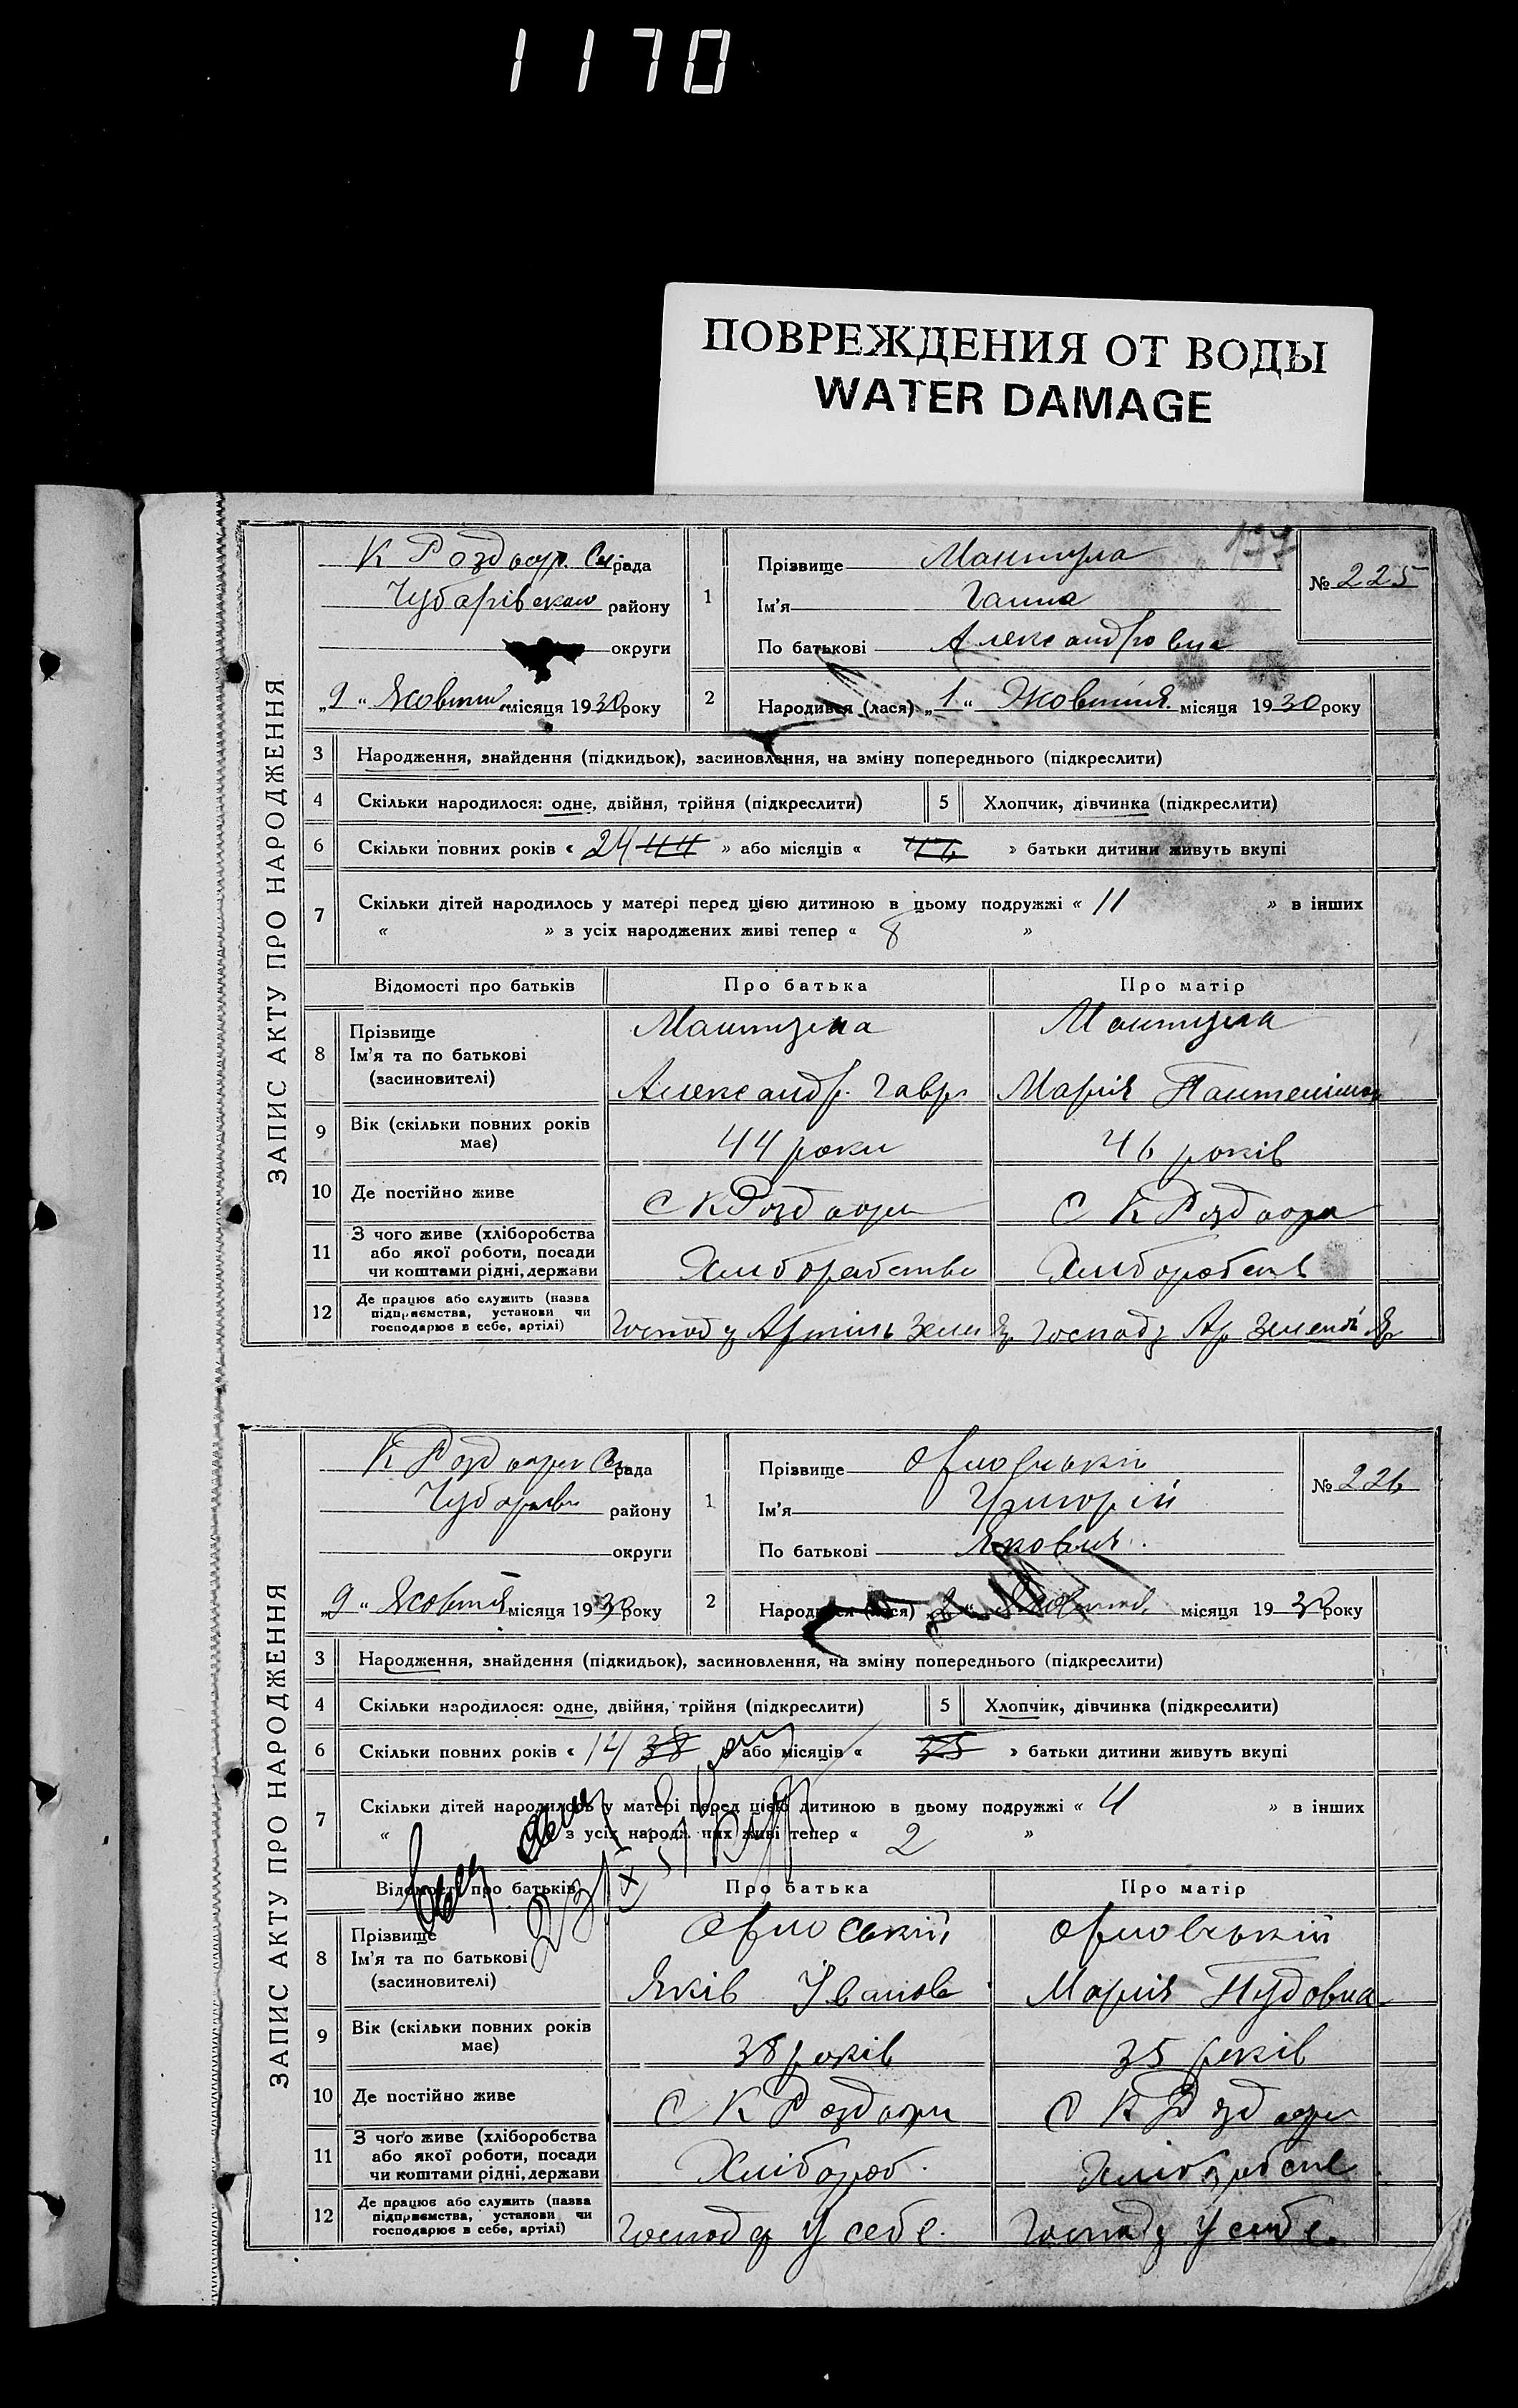 1170
ПОВРЕЖДЕНИЯ ОТ ВОДЫ
WATER DAMAGE
ЗАПИС АКТУ ПРО НАРОДЖЕННЯ
К Роздор. рада
Чубарівськ району
округи
„9“ Жовтня місяця 1930 року
1 Прізвище Мантула
Ім'я Ганна
По батькові Александровна
№ 225
2 Народився (лася) „1“ Жовтня місяця 1930 року
3 Народження, знайдення (підкидьок), засиновлення, на зміну попереднього (підкреслити)
4 Скільки народилося: одне, двійня, трійня (підкреслити) 5 Хлопчик, дівчинка (підкреслити)
6 Скільки повних років « 24 44 » або місяців « 46 » батьки дитини живуть вкупі
7 Скільки дітей народилось у матері перед цією дитиною в цьому подружжі « 11 » в інших
« » з усіх народжених живі тепер « 8 »
Відомості про батьків Про батька Про матір
8 Прізвище Мантула Мантула
Ім'я та по батькові
(засиновителі) Александр. Гавр Марія
9 Вік (скільки повних років
має) 44 роки 46 років
10 Де постійно живе С К Роздори С К Роздори
11 З чого живе (хліборобства
або якої роботи, посади
чи коштами рідні, держави Хлиборобство Хлиборобств
12 Де працює або служить (назва
підприємства, установи чи
господарює в себе, артілі) Господ у Артіль Зелен Яр Господ у Ар Зелений Яр
ЗАПИС АКТУ ПРО НАРОДЖЕННЯ
К Роздори рада
Чубарівс району
округи
„9“ Жовтня місяця 1930 року
1 Прізвище Орловський
Ім'я Григорій
По батькові Якович
№ 226
2 Народився (лася) Жовтня місяця 1930 року
3 Народження, знайдення (підкидьок), засиновлення, на зміну попереднього (підкреслити)
4 Скільки народилося: одне, двійня, трійня (підкреслити) 5 Хлопчик, дівчинка (підкреслити)
6 Скільки повних років « 14 38 » або місяців « 35 » батьки дитини живуть вкупі
7 Скільки дітей народилось у матері перед цією дитиною в цьому подружжі « 4 » в інших
« » з усіх народжених живі тепер « 2 »
Відомості про батьків Про батька Про матір
8 Прізвище Орловський Орловській
Ім'я та по батькові
(засиновителі) Яків Іванов Марія
9 Вік (скільки повних років
має) 38 років 35 років
10 Де постійно живе С К Роздори С К Роздори
11 З чого живе (хліборобства
або якої роботи, посади
чи коштами рідні, держави Хлібороб. Хліборобств
12 Де працює або служить (назва
підприємства, установи чи
господарює в себе, артілі) Господ у себе. Господ у себе.